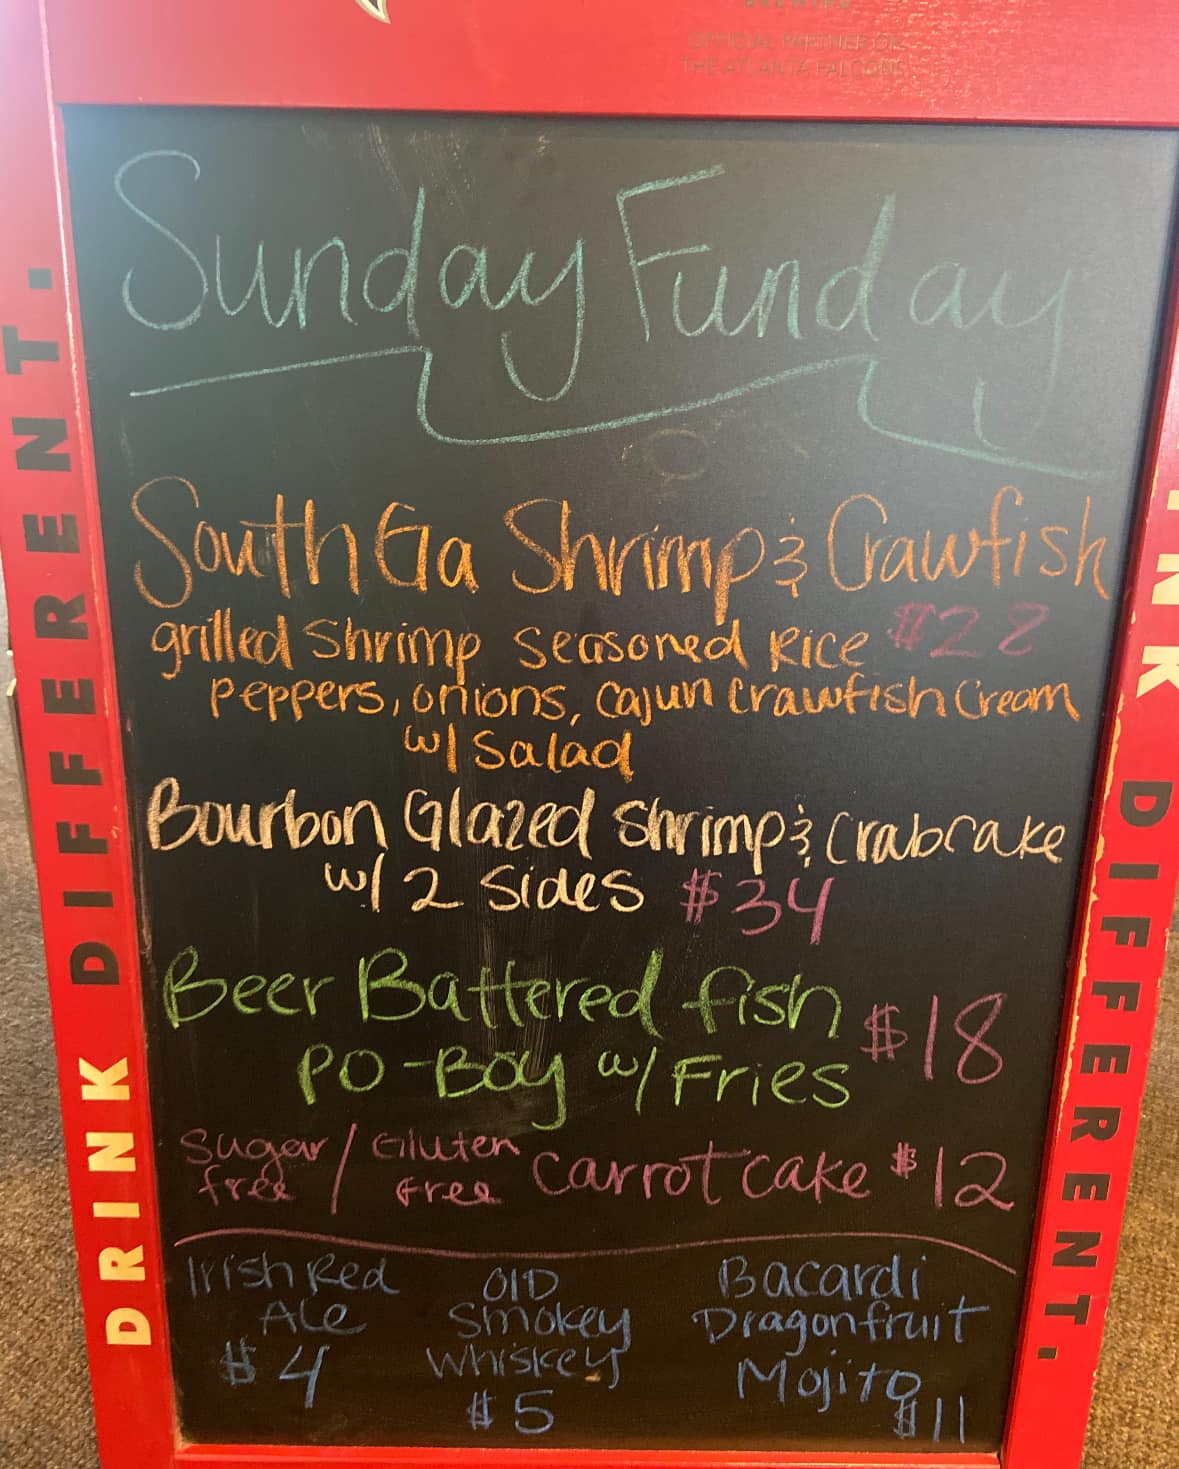 BREWING
OFFICIAL PARTNER OF
THE ATLANTA FALCONS
Sunday Funday
South Ga Shrimp & Crawfish
grilled Shrimp seasoned Rice $28
peppers, onions, cajun crawfish cream
w/ Salad
Bourbon Glazed Shrimp & Crabcake
w/ 2 Sides $34
Beer Battered fish $18
PO-Boy w/ Fries
Sugar free / Gluten Free Carrot cake $12
Irish Red
Ale
$4
Old
Smokey
Whiskey
$5
Bacardi
Dragonfruit
Mojito
$11
DRINK DIFFERENT.
INK DIFFERENT.